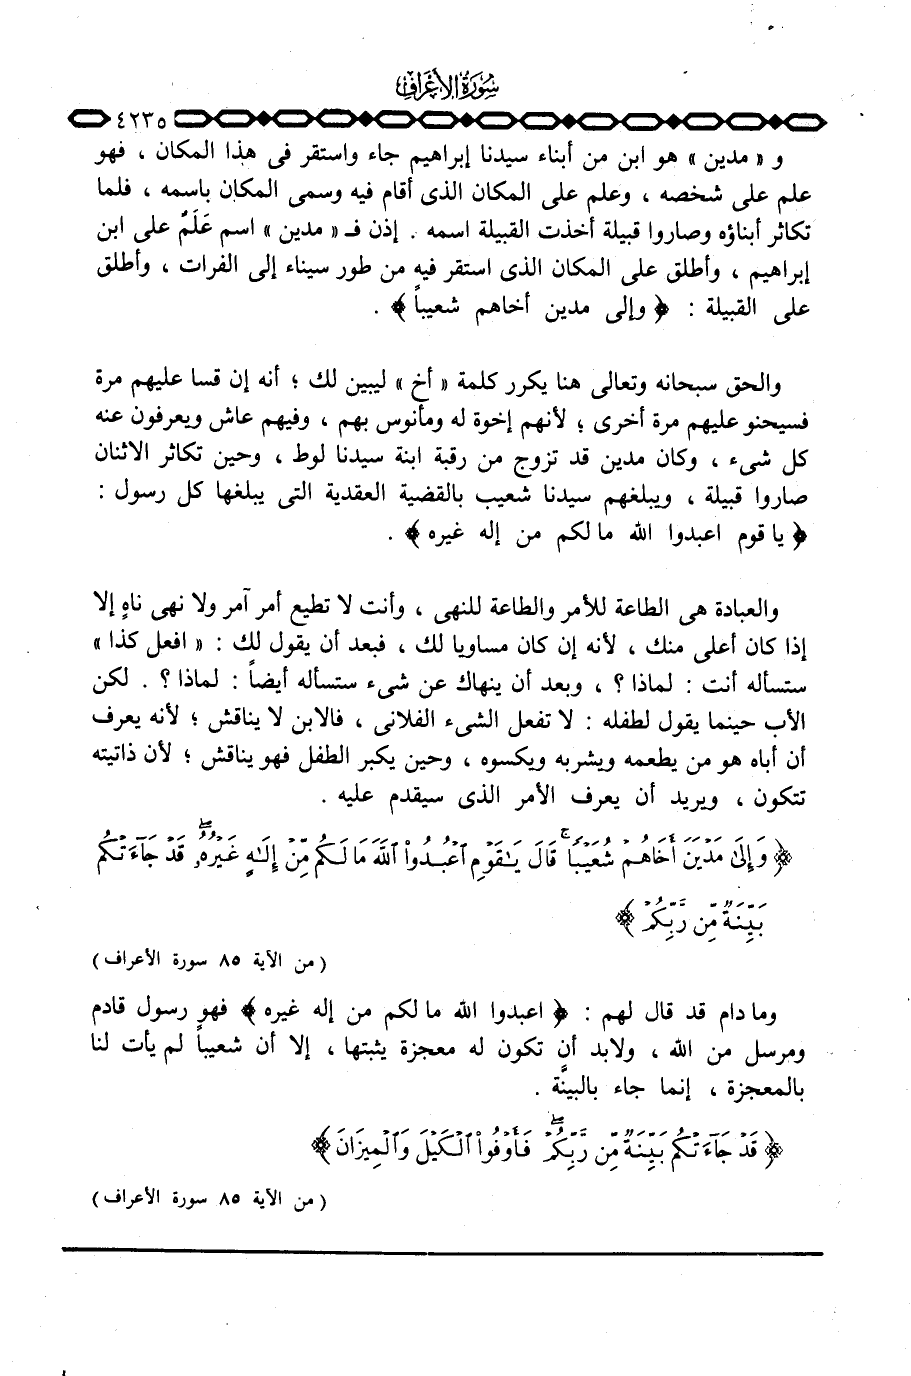 سُورَةُ الأَعْرَافِ
٤٢٣٥
و « مدين » هو ابن من أبناء سيدنا إبراهيم جاء واستقر فى هذا المكان ، فهو
علم على شخصه ، وعلم على المكان الذى أقام فيه وسمى المكان باسمه ، فلما
تكاثر أبناؤه وصاروا قبيلة أخذت القبيلة اسمه . إذن فـ « مدين » اسم عَلَمٌ على ابن
إبراهيم ، وأطلق على المكان الذى استقر فيه من طور سيناء إلى الفرات ، وأطلق
على القبيلة : ﴿ وإلى مدين أخاهم شعيباً ﴾ .
والحق سبحانه وتعالى هنا يكرر كلمة « أخ » ليبين لك ؛ أنه إن قسا عليهم مرة
فسيحنو عليهم مرة أخرى ؛ لأنهم إخوة له ومأنوس بهم ، وفيهم عاش ويعرفون عنه
كل شىء ، وكان مدين قد تزوج من رقبة ابنة سيدنا لوط ، وحين تكاثر الاثنان
صاروا قبيلة ، ويبلغهم سيدنا شعيب بالقضية العقدية التى يبلغها كل رسول :
﴿ يا قوم اعبدوا الله مالكم من إله غيره ﴾ .
والعبادة هى الطاعة للأمر والطاعة للنهى ، وأنت لا تطيع أمر آمر ولا نهى ناهٍ إلا
إذا كان أعلى منك ، لأنه إن كان مساويا لك ، فبعد أن يقول لك : « افعل كذا »
ستسأله أنت : لماذا ؟ ، وبعد أن ينهاك عن شىء ستسأله أيضاً : لماذا ؟ . لكن
الأب حينما يقول لطفله : لا تفعل الشىء الفلانى ، فالابن لا يناقش ؛ لأنه يعرف
أن أباه هو من يطعمه ويشربه ويكسوه ، وحين يكبر الطفل فهو يناقش ؛ لأن ذاتيته
تتكون ، ويريد أن يعرف الأمر الذى سيقدم عليه .
﴿ وَإِلَىٰ مَدْيَنَ أَخَاهُمْ شُعَيْبًا ۚ قَالَ يَٰقَوْمِ ٱعْبُدُوا۟ ٱللَّهَ مَا لَكُم مِّنْ إِلَٰهٍ غَيْرُهُۥ ۖ قَدْ جَآءَتْكُم
بَيِّنَةٌ مِّن رَّبِّكُمْ ﴾
( من الآية ٨٥ سورة الأعراف )
وما دام قد قال لهم : ﴿ اعبدوا الله مالكم من إله غيره ﴾ فهو رسول قادم
ومرسل من الله ، ولابد أن تكون له معجزة يثبتها ، إلا أن شعيباً لم يأت لنا
بالمعجزة ، إنما جاء بالبينَّة .
﴿ قَدْ جَآءَتْكُم بَيِّنَةٌ مِّن رَّبِّكُمْ ۖ فَأَوْفُوا۟ ٱلْكَيْلَ وَٱلْمِيزَانَ ﴾
( من الآية ٨٥ سورة الأعراف )